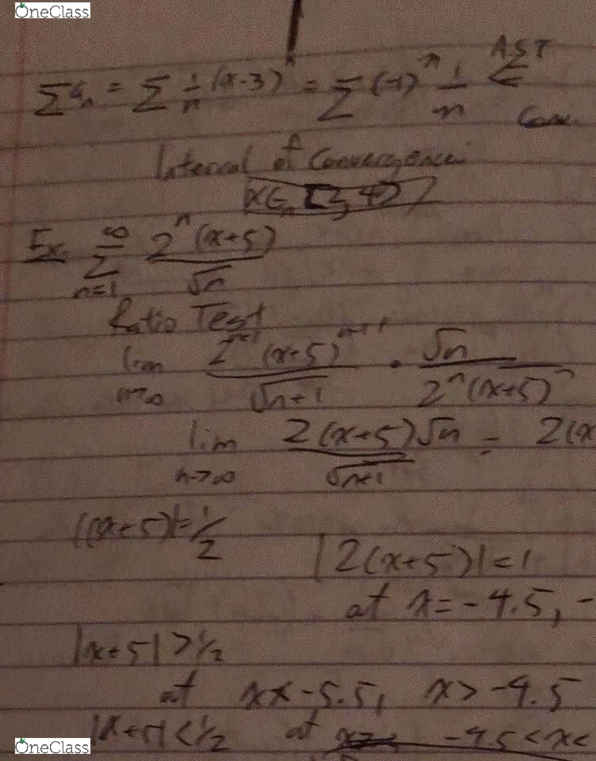 OneClass
Σaₙ = Σ 1/n (x-3)ⁿ = Σ (-1)ⁿ 1/n Σ A.S.T
Conv.
Interval of Convergence:
x∈ [2, 4)
Ex. ∞ Σ n=1 2ⁿ(x+5) / √n
Ratio Test
lim n→∞ 2ⁿ⁺¹ (x+5)ⁿ⁺¹ / √n+1 • √n / 2ⁿ(x+5)ⁿ
lim n→∞ 2(x+5)√n / √n+1 = 2(x
|(x+5)|=1/2
|2(x+5)|=1
at x=-4.5, -
|x+5| > 1/2
at x<-5.5, x>-4.5
|x+5|<1/2 at -4.5<x<
OneClass